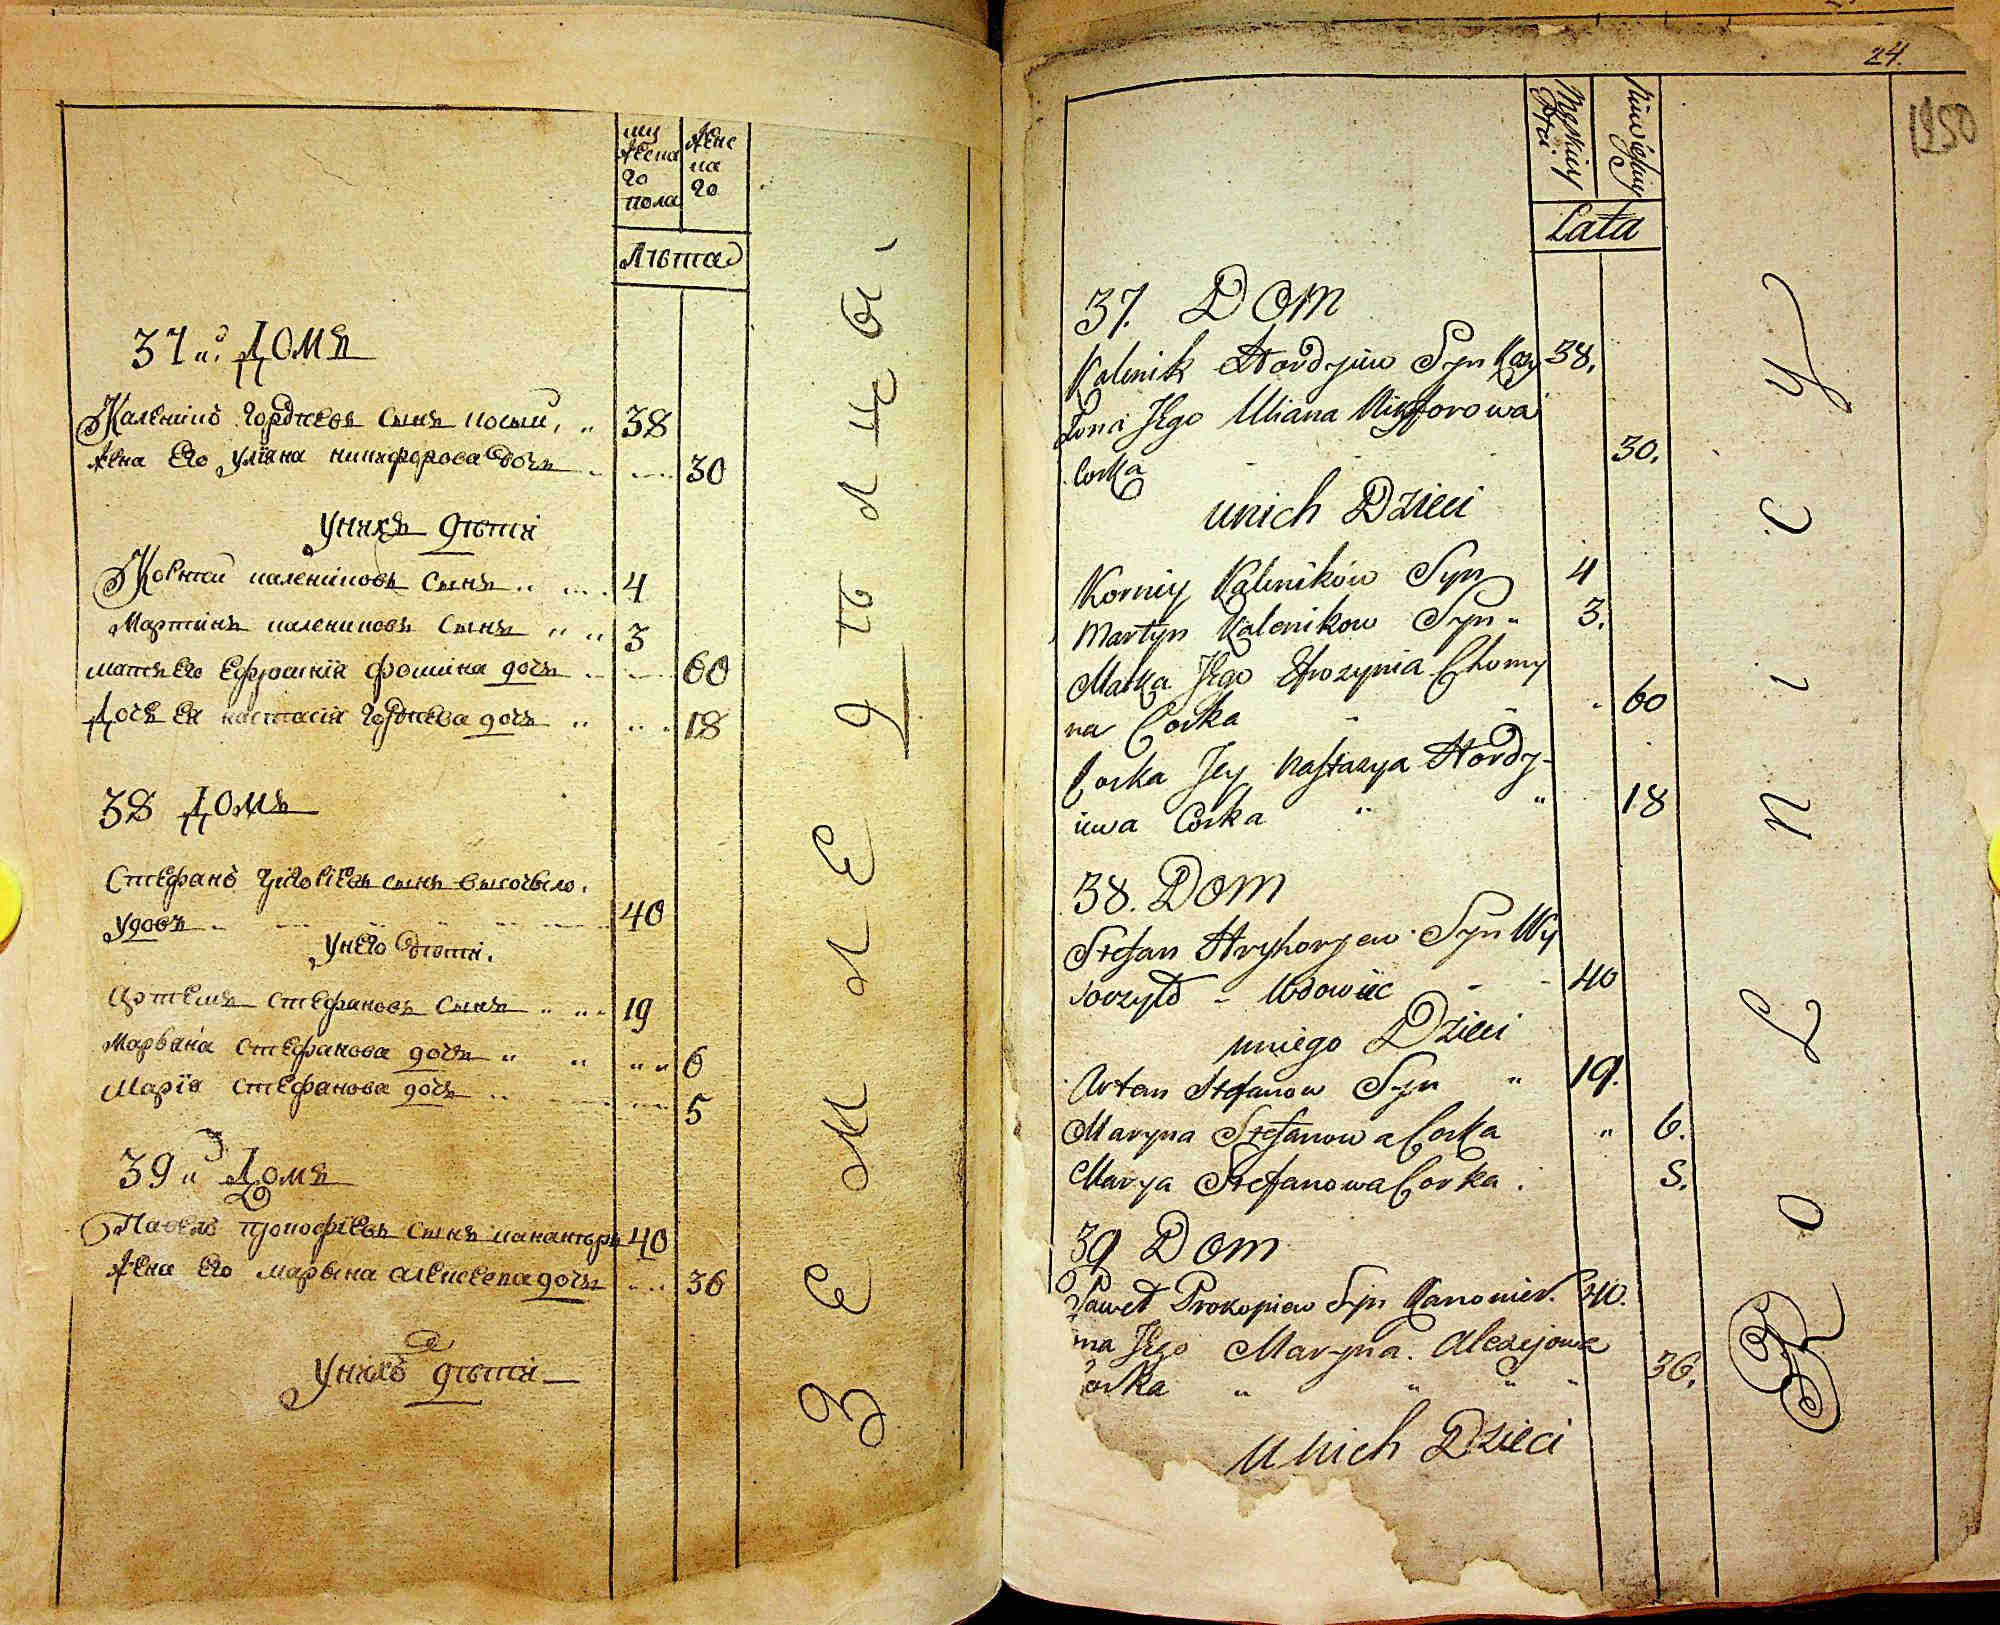 му
жеска
го
пола
женс
ка
го
Лѣта
37й Домъ
Каленикъ гордѣевъ сынъ косый 38
жена его улїана никифорова дочь 30
у нихъ дѣти
Корнѣй калениковъ сынъ 4
Мартинъ калениковъ сынъ 3
мать его Ефросинїя фомина дочь 60
Дочь Ея настасїя гордѣева дочь 18
38 Домъ
Стефанъ григорїевъ сынъ
удовъ 40
у него дѣти
Артемъ стефановъ сынъ 19
Марьана стефанова дочь 6
Марїя стефанова дочь 5
39й Домъ
Павелъ прокофїевъ сынъ 40
жена его марьяна алексѣева дочь 36
у нихъ дѣти
Земледѣльцы
24.
1250
Męskiey
Płci.
Lata
37. Dom
Kalenik Hordyiow Syn Kosy 38.
Żona Jego Uliana Nikyforowa
Corka 30.
u nich Dzieci
Korniy Kalenikow Syn 4
Martyn Kalenikow Syn " 3.
Matka Jego Efrozynia Chomy
na Corka " " 60
Corka Jey Nastazya Hordy-
iowa Corka " " 18
38. Dom
Stefan Hryhoryew Syn Wy
- Wdowiec - - 40
u niego Dzieci
Artem Stefanow Syn " 19.
Maryna Stefanowa Corka " 6.
Marya Stefanowa Corka . 5.
39 Dom
Paweł Prokopiew Syn Kanonier. 40.
na Jego Maryna Alexejowa
Corka " " " " 36.
u nich Dzieci
Rolnicy